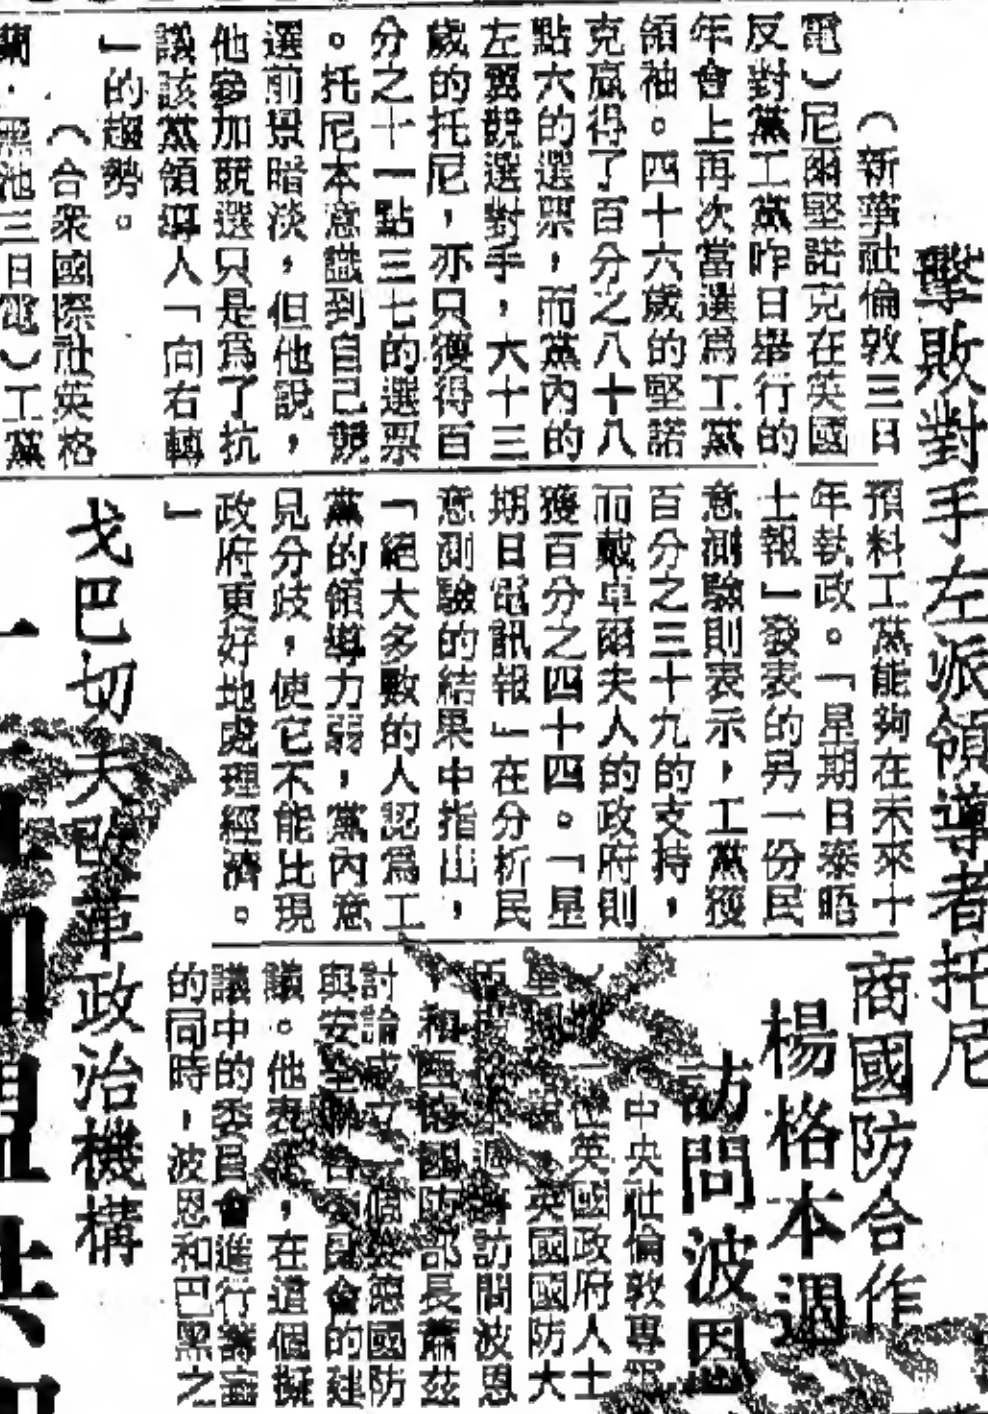 擊敗對手左派領導者托尼
（新華社倫敦三日
電）尼爾堅諾克在英國
反對黨工黨昨日舉行的
年會上再次當選爲工黨
領袖。四十六歲的堅諾
克贏得了百分之八十八
點六的選票，而黨內的
左翼競選對手，六十三
歲的托尼，亦只獲得百
分之十一點三七的選票
。托尼本意識到自己競
選前景暗淡，但他說，
他參加競選只是爲了抗
議該黨領導人「向右轉
」的趨勢。
（合衆國際社英格
蘭．黑池三日電）工黨
預料工黨能夠在未來十
年執政。「星期日泰晤
士報」發表的另一份民
意測驗則表示，工黨獲
百分之三十九的支持，
而戴卓爾夫人的政府則
獲百分之四十四。「星
期日電訊報」在分析民
意測驗的結果中指出，
「絕大多數的人認爲工
黨的領導力弱，黨內意
見分歧，使它不能比現
政府更好地處理經濟。
」
商國防合作
楊格本週
訪問波恩
中央社倫敦專
一位英國政府人士
英國國防大
訪問波恩
，和西德國防部長蕭茲
討論成立一個 德國防
與安全 會的建
議。他表示，在這個擬
議中的委員會進行
的同時，波恩和巴黑之
戈巴切夫改革政治機構